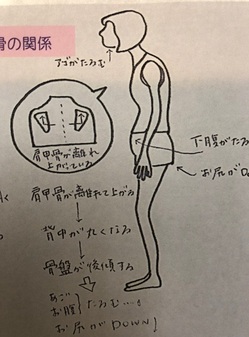 骨の関係
アゴがたるむ
肩甲骨が離れ
上がっている
下腹がたる
お尻がDO
肩甲骨が離れて上がる
↓
背中が丸くなる
↓
骨盤が後傾する
⇩
あご
お腹 } たるむ…!
お尻がDOWN!